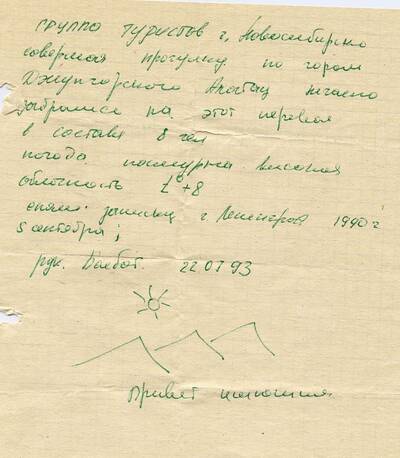 группа туристов г. Новосибирска
совершая прогулку по горам
Джунгарского Алатау нечаено
забрались на этот перевал
в составе 8 чел
погода пасмурная высокая
облачность t° +8
сняли записку г Ленинград 1990 г
5 сентября;
рук. 22 07 93
Привет